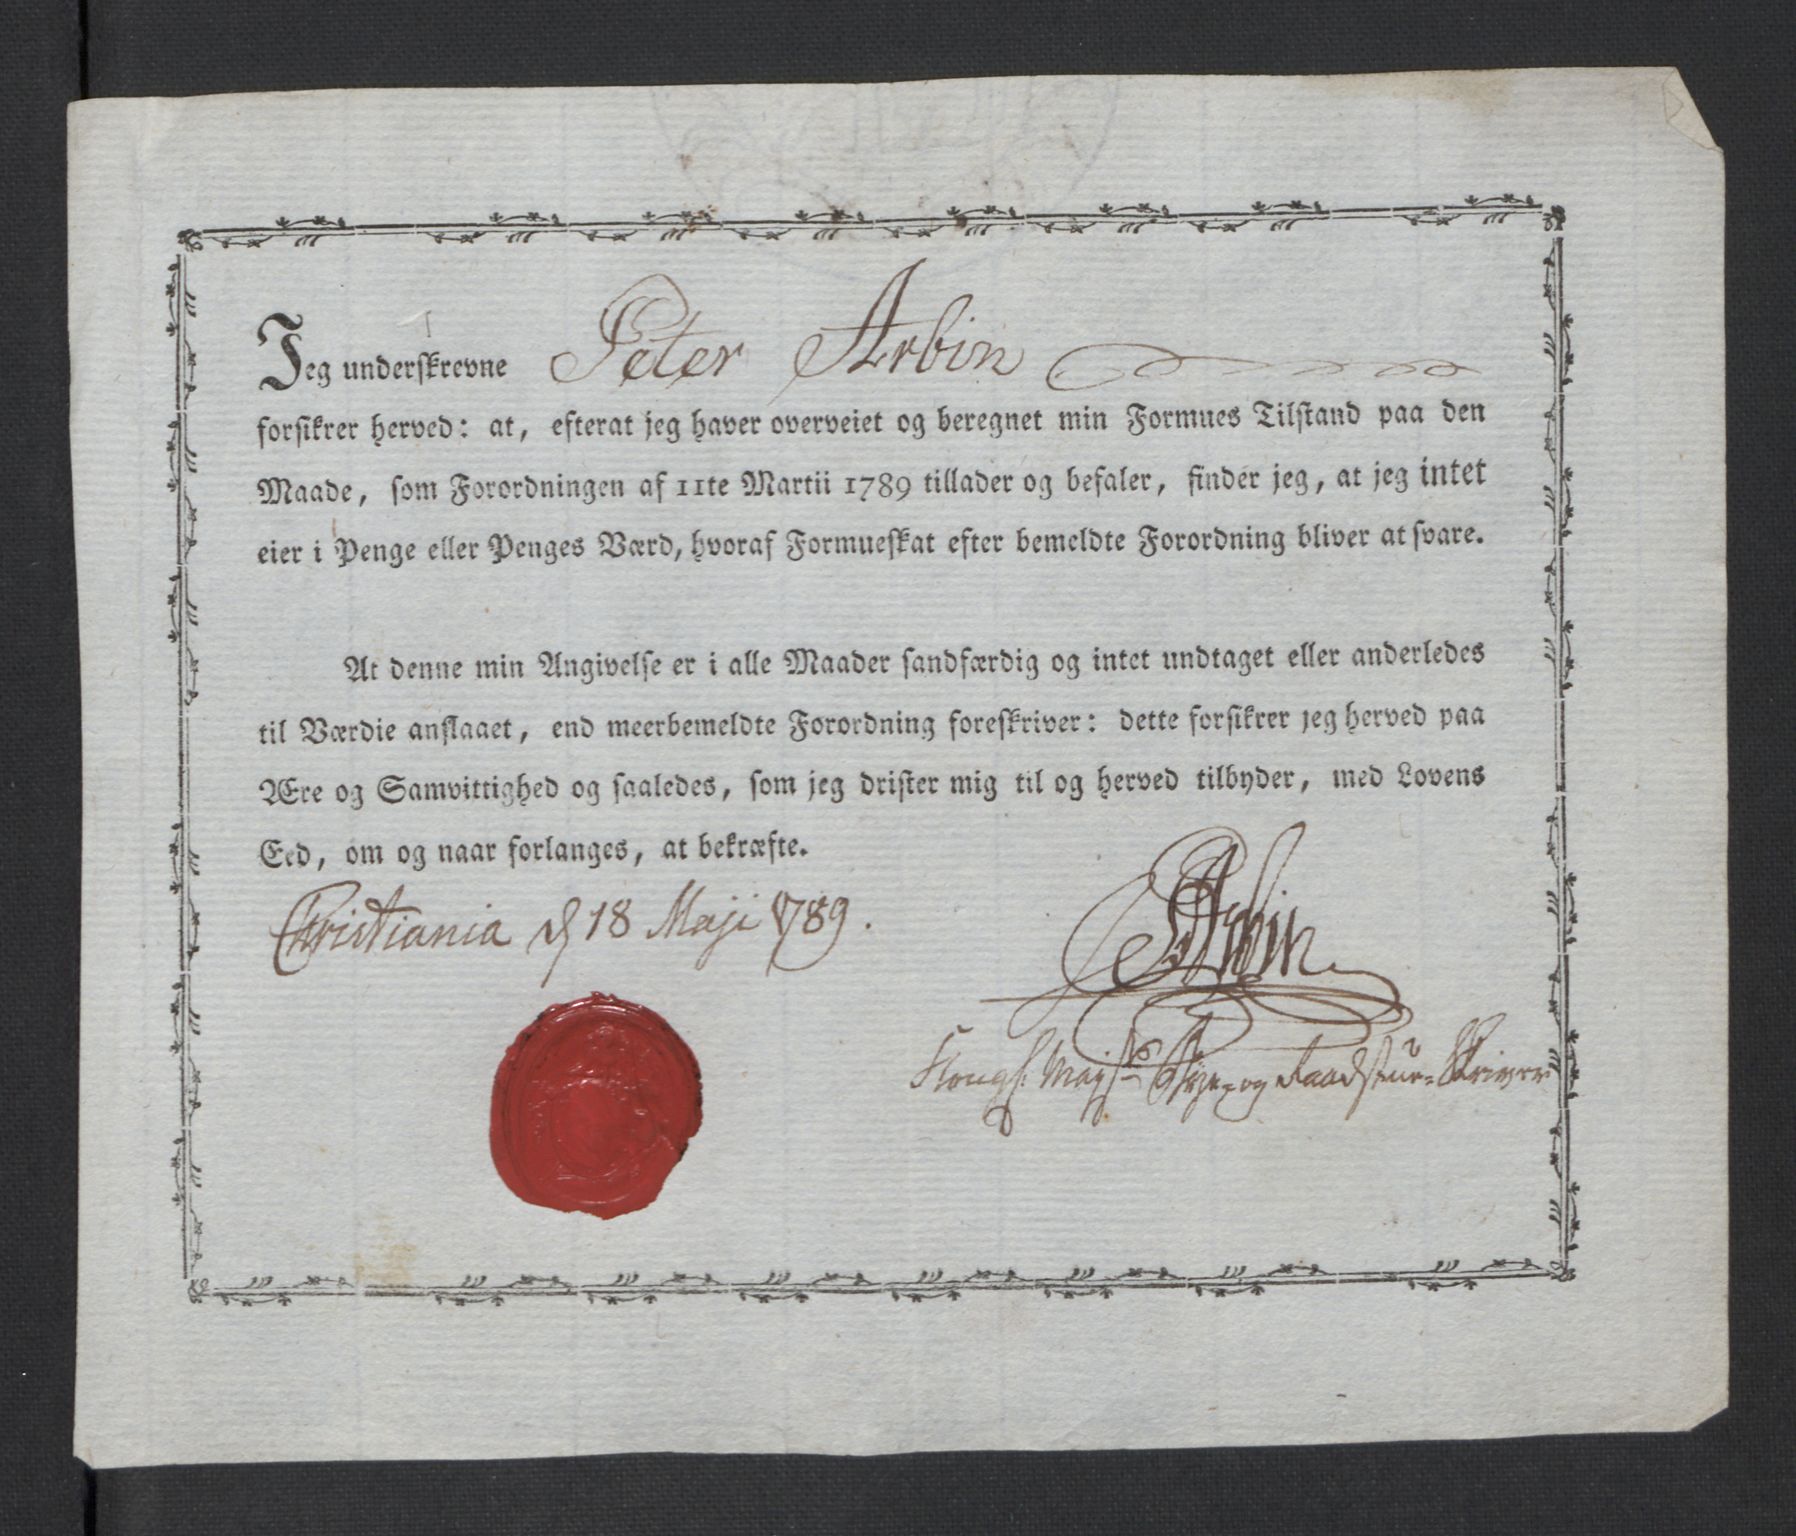 Jeg underskrevne Peter Arbin
forsikrer herved: at, efterat jeg haver overveiet og beregnet min Formues Tilstand paa den
Maade, som Forordningen af 11te Martii 1789 tillader og befaler, finder jeg, at jeg intet
eier i Penge eller Penges Værd, hvoraf Formueskat efter bemeldte Forordning bliver at svare.
At denne min Angivelse er i alle Maader sandfærdig og intet undtaget eller anderledes
til Værdie anslaaet, end meerbemeldte Forordning foreskriver: dette forsikrer jeg herved paa
Ære og Samvittighed og saaledes, som jeg drister mig til og herved tilbyder, med Lovens
Eed, om og naar forlanges, at bekræfte.
Christiania d 18 Maji 1789.
PArbin
Kongl: Mayst: Bye- og Raadstue-Skriver